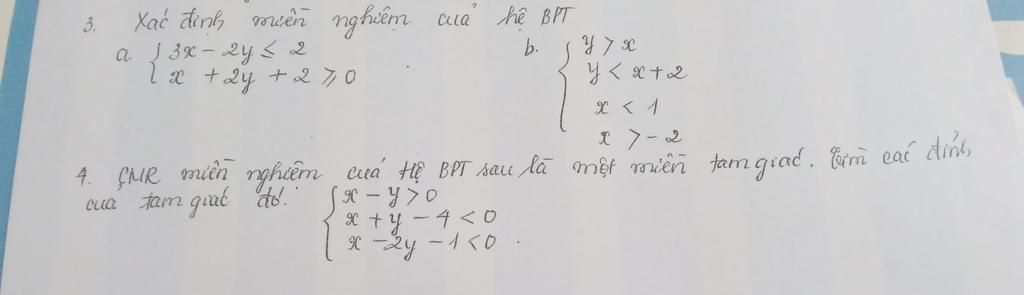 3. Xác định miền nghiệm của hệ BPT
a. { 3x - 2y ≤ 2
x + 2y + 2 ≥ 0
b. { y > x
y < x + 2
x < 1
x > -2
4. CMR miền nghiệm của Hệ BPT sau là một miền tam giác. Tìm các đỉnh
của tam giác đó.
{ x - y > 0
x + y - 4 < 0
x - 2y - 1 < 0.